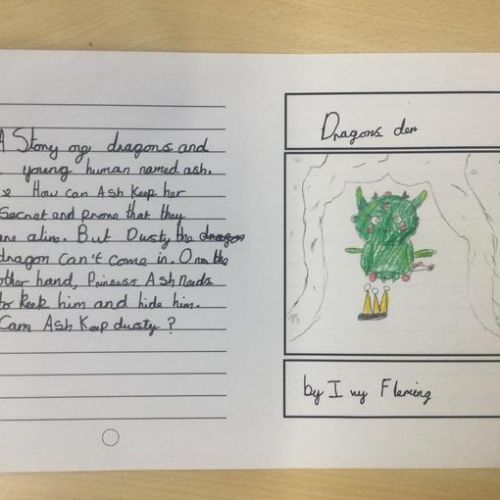 A Story og dragons and
young human named ash.
How can Ash keep her
Secret and prove that they
are alive. But Dusty the dragon
dragon can't come in. On the
other hand, Prinsess Ash Nards
to keek him and hide him.
Can Ash Keep dusty?
Dragons den
by Ivy Fleming